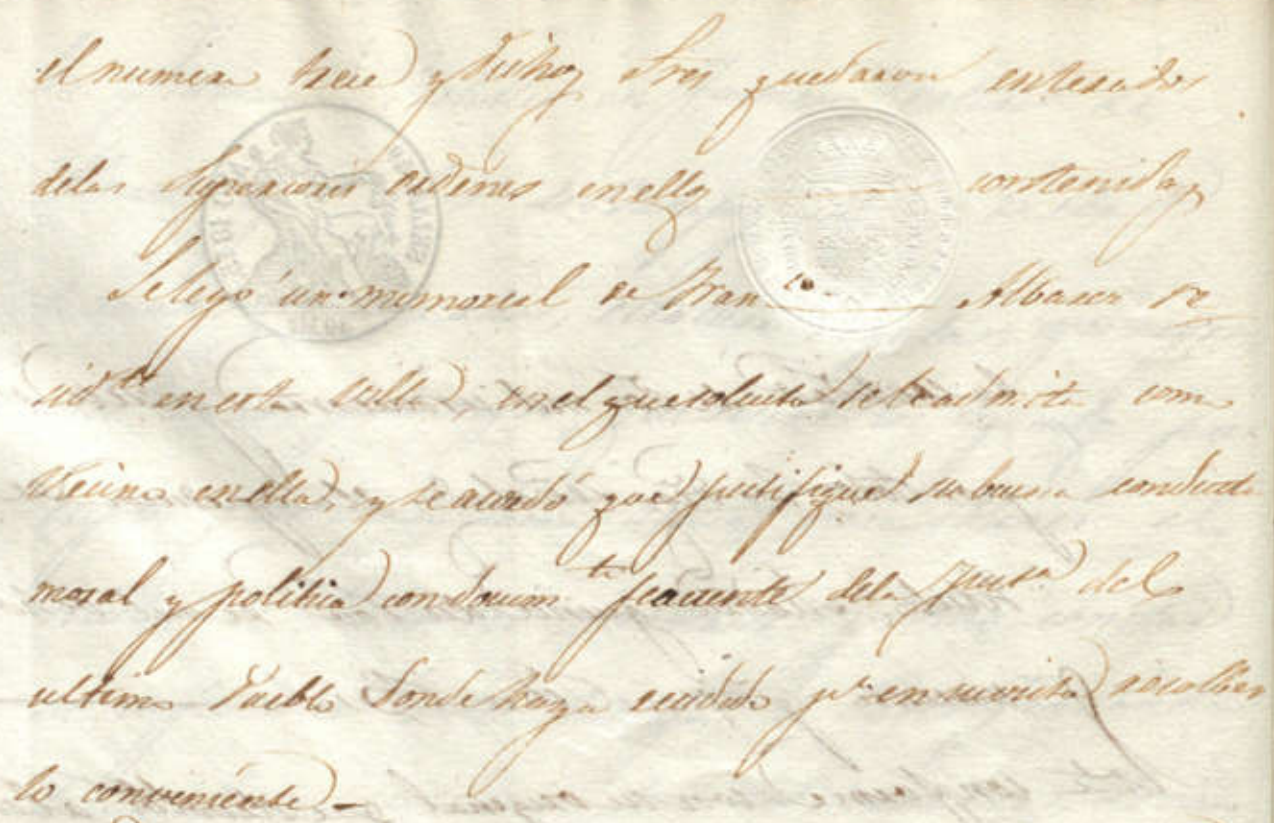 el numero trece y dichos Sres quedaron enterados
delas Superiores ordenes en ellas contenidas
Se leyó un memorial de Fran.co Albacer re
sid.te en esta villa, en el que solicita se le admita como
vecino en ella, y se acordó que justifique su buena conducta
moral y politica con docum.to feaciente dela Just.a del
ultimo Pueblo donde haya recidido p.a en su vista resolber
lo conveniente